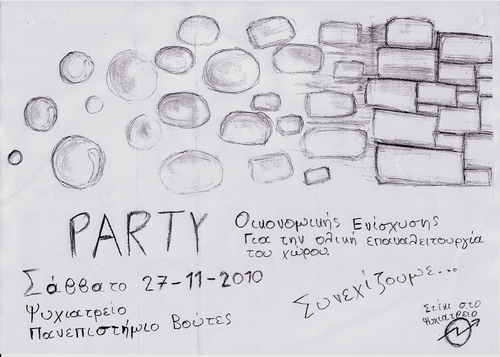 PARTY Οικονομικής Ενίσχυσης
Για την ολική επαναλειτουργία
του χώρου
Σάββατο 27-11-2010
Ψυχιατρείο
Πανεπιστήμιο Βούτες
Συνεχίζουμε...
Στέκι στο
Ψυχιατρείο